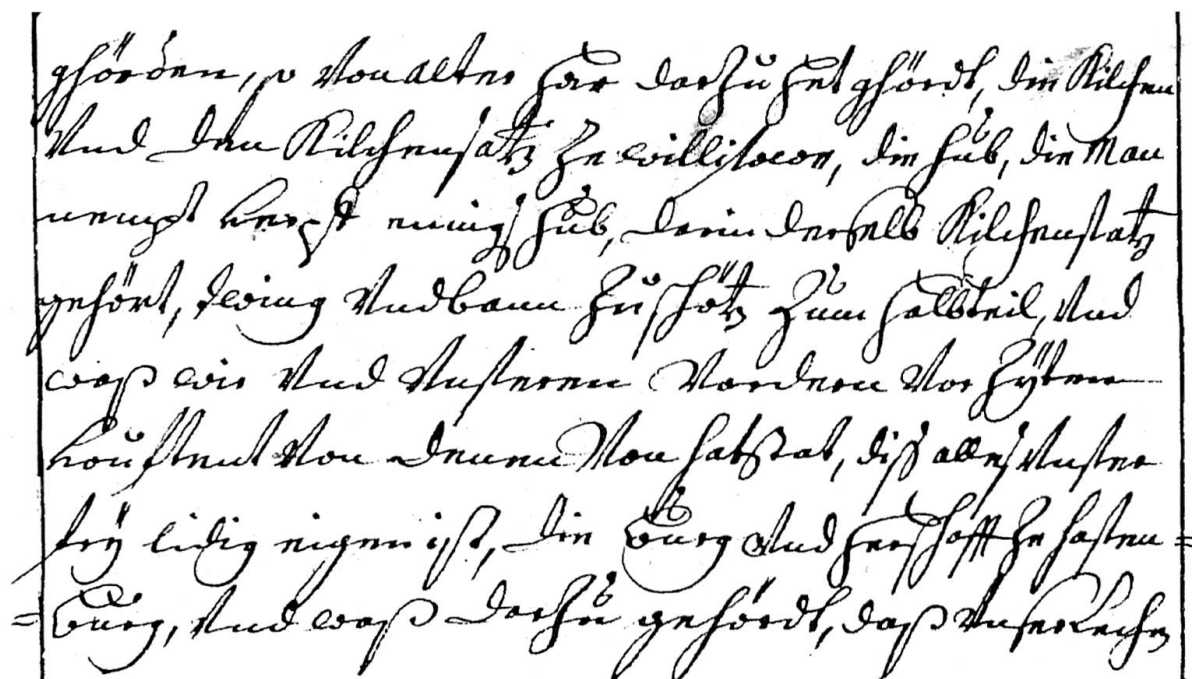 ghörden, so von alter har darzu het ghördt, die Kilchen
Vnd den Kilchensatz ze willisow, die hůb, die Man
nempt hub, darin derselb Kilchensatz
gehört, twing Vnd bann zu schötz zum halbteil, Vnd
waß wir Vnd Vnsteren Vordern Vor Zÿten
kouftent Von denen Von hatstat, diß alles Vnser
frÿ lidig eigen ist, die Burg Vnd herschafft ze hasten=
=Burg, Vnd waß darzů gehördt, daß Vnser Lechen